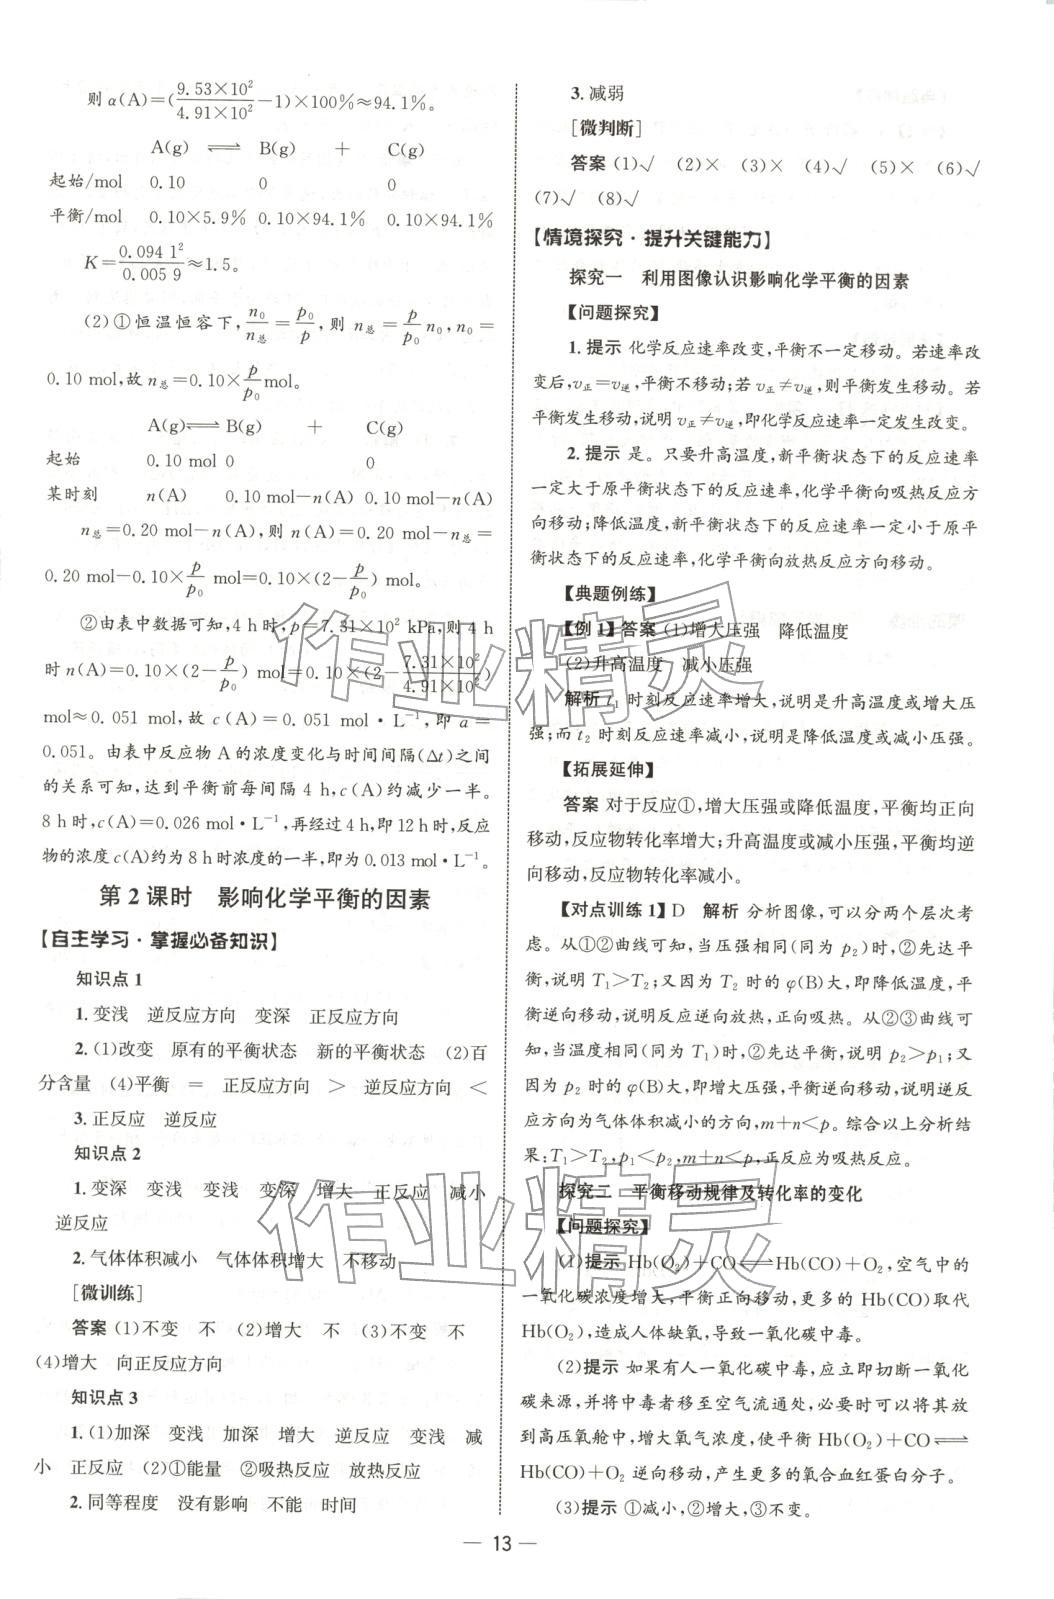 则 α(A)=(9.53×10²/4.91×10²−1)×100%≈94.1%。
A(g) ⇌ B(g) + C(g)
起始/mol 0.10 0 0
平衡/mol 0.10×5.9% 0.10×94.1% 0.10×94.1%
K=0.094 1²/0.005 9≈1.5。
(2)①恒温恒容下,n₀/n总=p₀/p,则 n总=p/p₀ n₀,n₀=
0.10 mol,故 n总=0.10×p/p₀ mol。
A(g)⇌B(g) + C(g)
起始 0.10 mol 0 0
某时刻 n(A) 0.10 mol−n(A) 0.10 mol−n(A)
n总=0.20 mol−n(A),则 n(A)=0.20 mol−n总=
0.20 mol−0.10×p/p₀=0.10×(2−p/p₀) mol。
②由表中数据可知,4 h时,p=7.31×10² kPa,则 4 h
时 n(A)=0.10×(2−p/p₀)=0.10×(2−7.31×10²/4.91×10²)
mol≈0.051 mol,故 c(A)=0.051 mol·L⁻¹,即 a=
0.051。由表中反应物 A 的浓度变化与时间间隔(Δt)之间
的关系可知,达到平衡前每间隔 4 h,c(A)约减少一半。
8 h时,c(A)=0.026 mol·L⁻¹,再经过4 h,即12 h时,反应
物的浓度 c(A)约为8 h时浓度的一半,即为0.013 mol·L⁻¹。
第 2 课时 影响化学平衡的因素
【自主学习·掌握必备知识】
知识点1
1.变浅 逆反应方向 变深 正反应方向
2.(1)改变 原有的平衡状态 新的平衡状态 (2)百
分含量 (4)平衡 = 正反应方向 > 逆反应方向 <
3.正反应 逆反应
知识点2
1.变深 变浅 变浅 变深 增大 正反应 减小
逆反应
2.气体体积减小 气体体积增大 不移动
[微训练]
答案 (1)不变 不 (2)增大 不 (3)不变 不
(4)增大 向正反应方向
知识点3
1.(1)加深 变浅 加深 增大 逆反应 变浅 减
小 正反应 (2)①能量 ②吸热反应 放热反应
2.同等程度 没有影响 不能 时间
3.减弱
[微判断]
答案 (1)√ (2)× (3)× (4)√ (5)× (6)√
(7)√ (8)√
【情境探究·提升关键能力】
探究一 利用图像认识影响化学平衡的因素
【问题探究】
1.提示 化学反应速率改变,平衡不一定移动。若速率改
变后,v正=v逆,平衡不移动;若 v正≠v逆,则平衡发生移动。若
平衡发生移动,说明 v正≠v逆,即化学反应速率一定发生改变。
2.提示 是。只要升高温度,新平衡状态下的反应速率
一定大于原平衡状态下的反应速率,化学平衡向吸热反应方
向移动;降低温度,新平衡状态下的反应速率一定小于原平
衡状态下的反应速率,化学平衡向放热反应方向移动。
【典题例练】
【例 1】答案 (1)增大压强 降低温度
(2)升高温度 减小压强
解析 t₁ 时刻反应速率增大,说明是升高温度或增大压
强;而 t₂ 时刻反应速率减小,说明是降低温度或减小压强。
【拓展延伸】
答案 对于反应①,增大压强或降低温度,平衡均正向
移动,反应物转化率增大;升高温度或减小压强,平衡均逆
向移动,反应物转化率减小。
【对点训练1】D 解析 分析图像,可以分两个层次考
虑。从①②曲线可知,当压强相同(同为 p₂)时,②先达平
衡,说明 T₁>T₂;又因为 T₂ 时的 φ(B)大,即降低温度,平
衡逆向移动,说明反应逆向放热,正向吸热。从②③曲线可
知,当温度相同(同为 T₁)时,②先达平衡,说明 p₂>p₁;又
因为 p₂ 时的 φ(B)大,即增大压强,平衡逆向移动,说明逆反
应方向为气体体积减小的方向,m+n<p。综合以上分析结
果:T₁>T₂,p₁<p₂,m+n<p,正反应为吸热反应。
探究二 平衡移动规律及转化率的变化
【问题探究】
(1)提示 Hb(O₂)+CO⇌Hb(CO)+O₂,空气中的
一氧化碳浓度增大,平衡正向移动,更多的 Hb(CO)取代
Hb(O₂),造成人体缺氧,导致一氧化碳中毒。
(2)提示 如果有人一氧化碳中毒,应立即切断一氧化
碳来源,并将中毒者移至空气流通处,必要时可以将其放
到高压氧舱中,增大氧气浓度,使平衡 Hb(O₂)+CO⇌
Hb(CO)+O₂ 逆向移动,产生更多的氧合血红蛋白分子。
(3)提示 ①减小,②增大,③不变。
— 13 —
作业精灵
作业精灵